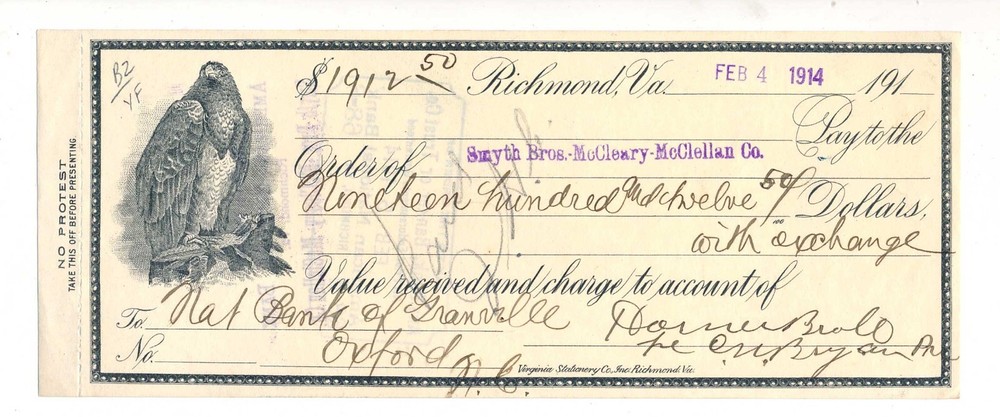 B2
VF
NO PROTEST
TAKE THIS OFF BEFORE PRESENTING.
$1912 50 Richmond, Va. FEB 4 1914 191
Pay to the
Order of Smyth Bros.-McCleary-McClellan Co.
Nineteen hundred and twelve 50/ Dollars,
with exchange
Value received and charge to account of
To Nat Bank of Granville
No. Oxford N.C.
C. H. Bryan
Virginia Stationery Co., Inc. Richmond, Va.